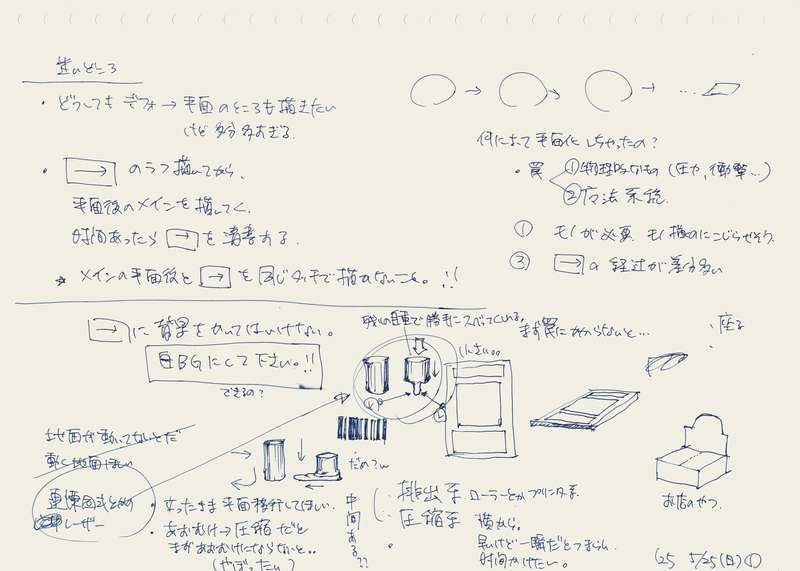 迷いどころ
・どうしてもデフォ→平面のところも描きたい
けど多分多すぎる.
・→のラフ描いてから、
平面後のメインを描いてく.
時間あったら→を清書する.
★メインの平面後と→を同じタッチで描かないこと。!!
→ → → …
何によって平面化しちゃったの?
・罠 ①物理的なもの(圧力,衝撃…)
②魔法系統.
①
③→の経過が差分多い
→に背景をかいてはいけない。
白BGにして下さい。!!
できるの?
まず罠にかからないと…
座る
地面が動いてないとだ
動く地面ほしい
レーザー
・立ったまま平面移行してほしい.
・あおむけ→圧縮だと
まずあおむけにならないと..
中間ある??
排出系 ローラーとかプリンタ系.
圧縮系 横から.
早いけど一瞬だとつまらん.
時間かけたい。
お店のやつ.
'25 5/25(日)①